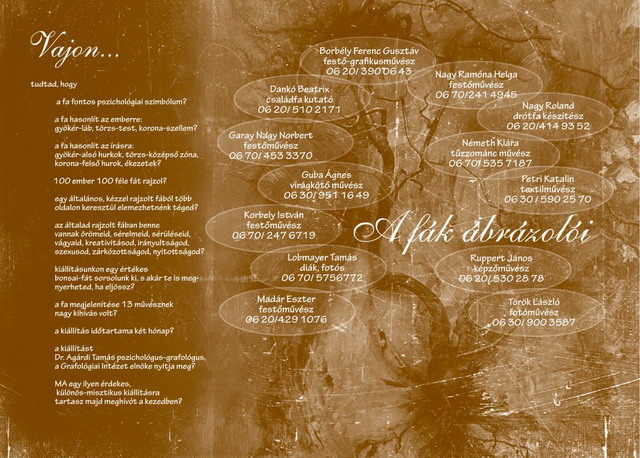 Vajon...
tudtad, hogy
a fa fontos pszichológiai szimbólum?
a fa hasonlít az emberre:
gyökér-láb, törzs-test, korona-szellem?
a fa hasonlít az írásra:
gyökér-alsó hurkok, törzs-középső zóna,
korona-felső hurok, ékezetek?
100 ember 100 féle fát rajzol?
egy általános, kézzel rajzolt fából több
oldalon keresztül elemezhetnénk téged?
az általad rajzolt fában benne
vannak örömeid, sérelmeid, sérüléseid,
vágyaid, kreativitásod, irányultságod,
szexusod, zárkózottságod, nyitottságod?
kiállításunkon egy értékes
bonsai-fát sorsolunk ki, s akár te is meg-
nyerheted, ha eljössz?
a fa megjelenítése 13 művésznek
nagy kihívás volt?
a kiállítás időtartama két hónap?
a kiállítást
Dr. Agárdi Tamás pszichológus-grafológus,
a Grafológiai Intézet elnöke nyitja meg?
MA egy ilyen érdekes,
különös-misztikus kiállításra
tartasz majd meghívót a kezedben?
Borbély Ferenc Gusztáv
festő-grafikusművész
06 20/ 390 06 43
Nagy Ramóna Helga
festőművész
06 70/241 4945
Dankó Beatrix
családfa kutató
06 20/ 510 2171
Nagy Roland
drótfa készítész
06 20/414 93 52
Garay Nagy Norbert
festőművész
06 70/ 453 3370
Németh Klára
tűzzománc művész
06 70/ 535 7187
Guba Ágnes
virágkötő művész
06 30/ 951 16 49
Petri Katalin
textilművész
06 30 / 590 25 70
Korbely István
festőművész
06 70/ 247 6719
A fák ábrázolói
Lobmayer Tamás
diák, fotós
06 70/ 5756772
Ruppert János
képzőművész
06 20/ 530 28 78
Madár Eszter
festőművész
06 20/429 1076
Török László
fotóművész
06 30/ 900 3587